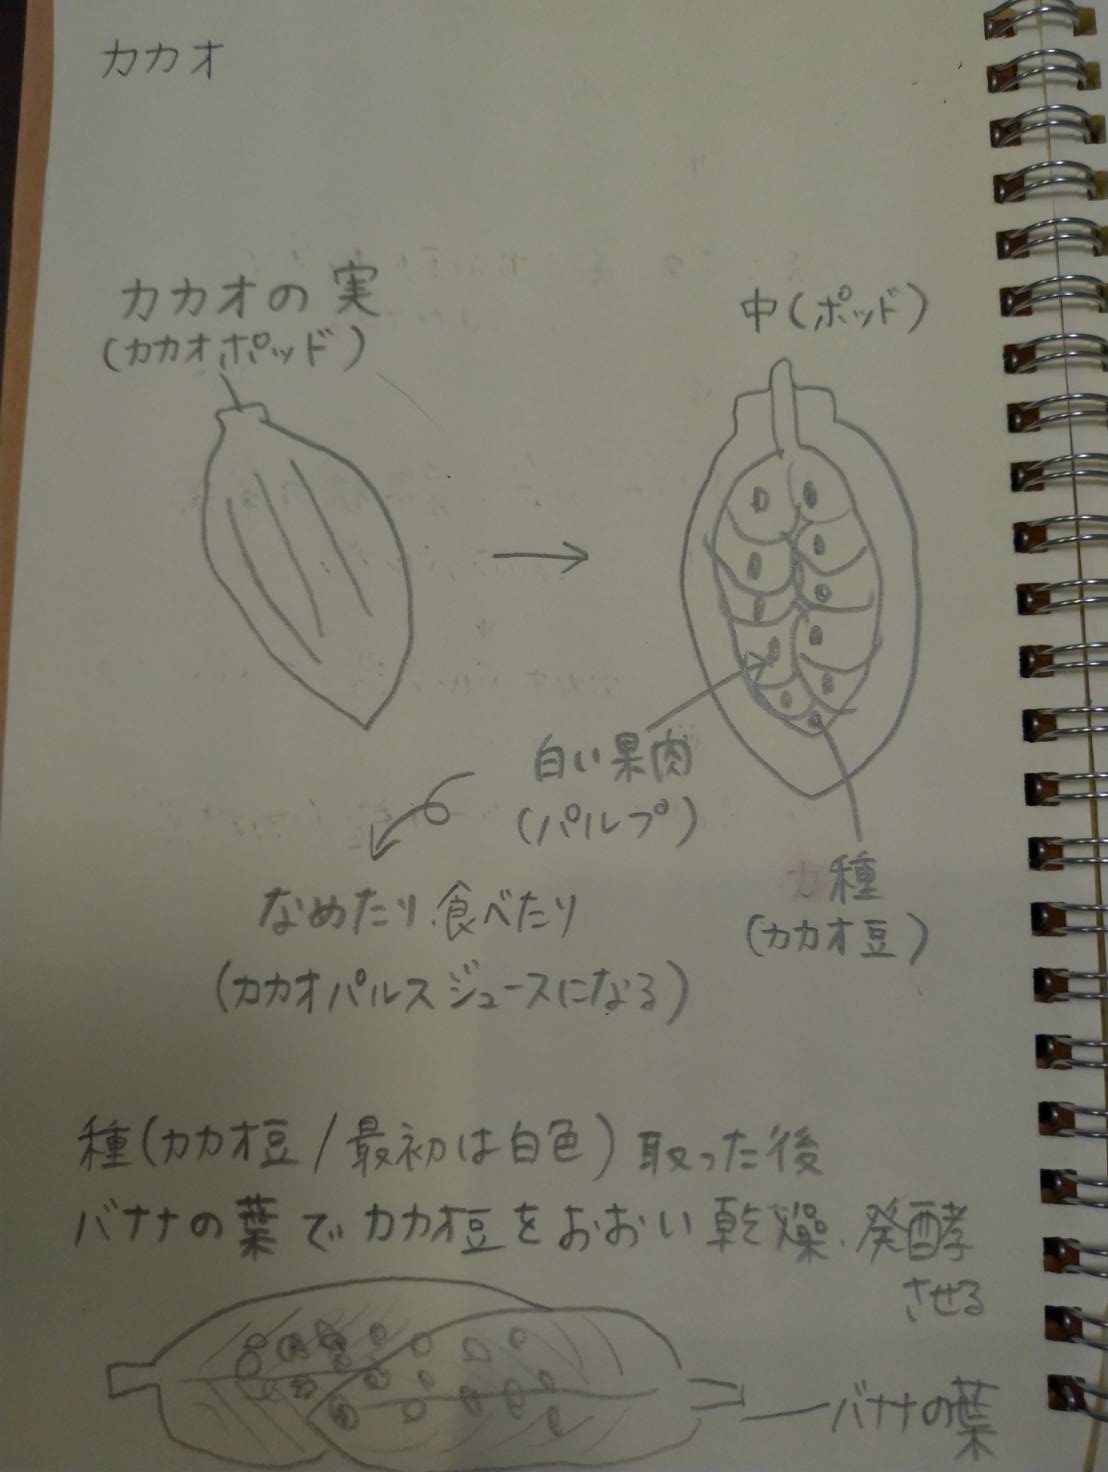 カカオ
カカオの実
(カカオポッド)
中(ポッド)
白い果肉
(パルプ)
種
(カカオ豆)
なめたり、食べたり
(カカオパルスジュースになる)
種(カカオ豆/最初は白色)取った後
バナナの葉でカカオ豆をおおい乾燥、発酵
させる
バナナの葉